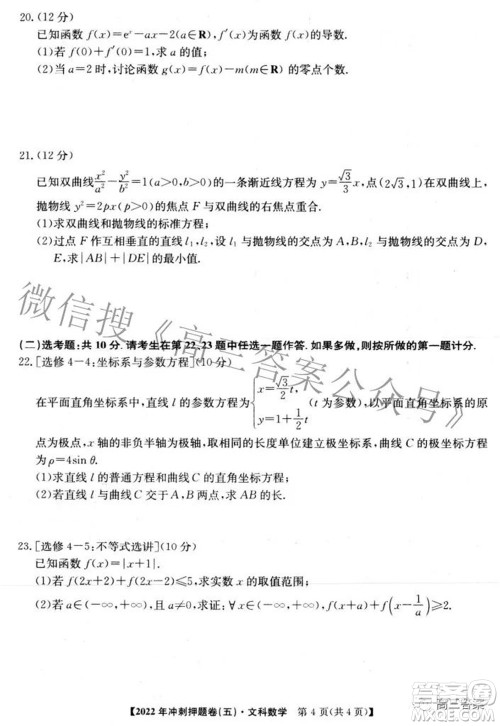 20.(12 分)
已知函数 f(x)=eˣ-ax-2(a∈R),f′(x)为函数 f(x)的导数.
(1)若 f(0)+f′(0)=1,求 a 的值;
(2)当 a=2 时,讨论函数 g(x)=f(x)-m(m∈R)的零点个数.
21.(12 分)
已知双曲线x²/a²-y²/b²=1(a>0,b>0)的一条渐近线方程为 y=√3/3x,点(2√3,1)在双曲线上,
抛物线 y²=2px(p>0)的焦点 F 与双曲线的右焦点重合.
(1)求双曲线与抛物线的标准方程;
(2)过点 F 作互相垂直的直线 l₁,l₂,设 l₁ 与抛物线的交点为 A,B,l₂ 与抛物线的交点为 D,
E,求|AB|+|DE|的最小值.
(二)选考题:共 10 分.请考生在第 22、23 题中任选一题作答.如果多做,则按所做的第一题计分.
22.[选修 4-4:坐标系与参数方程](10 分)
在平面直角坐标系中,直线 l 的参数方程为{x=√3/2t, y=1+1/2t (t 为参数),
点为极点,x 轴的非负半轴为极轴,取相同的长度单位建立极坐标系,曲线 C 的极坐标方程
为 ρ=4sin θ.
(1)求直线 l 的普通方程和曲线 C 的直角坐标方程;
(2)若直线 l 与曲线 C 交于 A,B 两点,求|AB|.
23.[选修 4-5:不等式选讲](10 分)
已知函数 f(x)=|x+1|.
(1)若 f(2x+2)+f(2x-2)≤5,求 x 的取值范围;
(2)若 a∈(-∞,+∞),且 a≠0,求证:∀x∈(-∞,+∞),f(x+a)+f(x-1/a)≥2.
【2022 年冲刺押题卷(五)·文科数学 第 4 页(共 4 页)】
微信搜《高三答案公众号》
高三答案